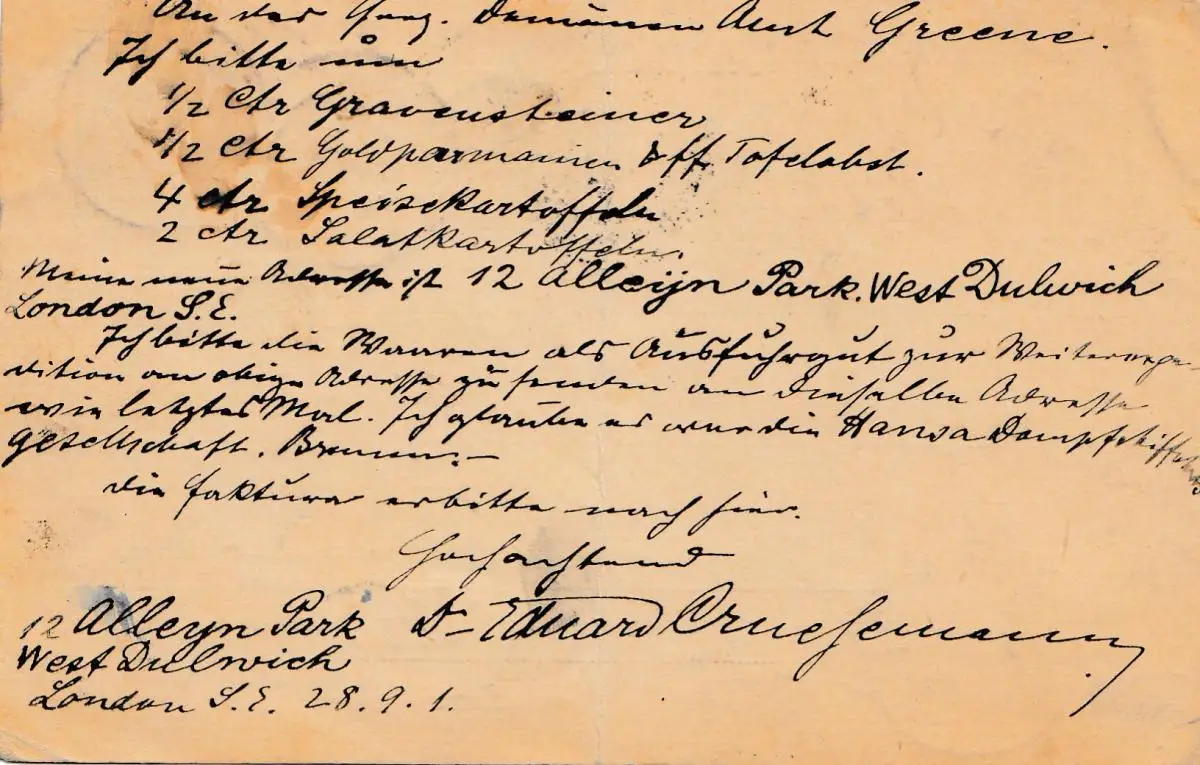 An das Herz. Domänen Amt Greene.
Ich bitte um
1/2 Ctr Gravensteiner
1/2 Ctr Goldparmainen & ff. Tafelobst.
4 ctr Speisekartoffeln
2 ctr Salatkartoffeln.
Meine neue Adresse ist 12 Alleyn Park. West Dulwich
London S.E.
Ich bitte die Waaren als Ausfuhrgut zur Weiterexpe-
dition an obige Adresse zu senden an dieselbe Adresse
wie letztes Mal. Ich glaube es war die Hansa Dampfschifffahrts
gesellschaft. Bremen.-
Die Faktura erbitte nach hier.
Hochachtend
12 Alleyn Park Dr Eduard Cruesemann
West Dulwich
London S.E. 28.9.1.